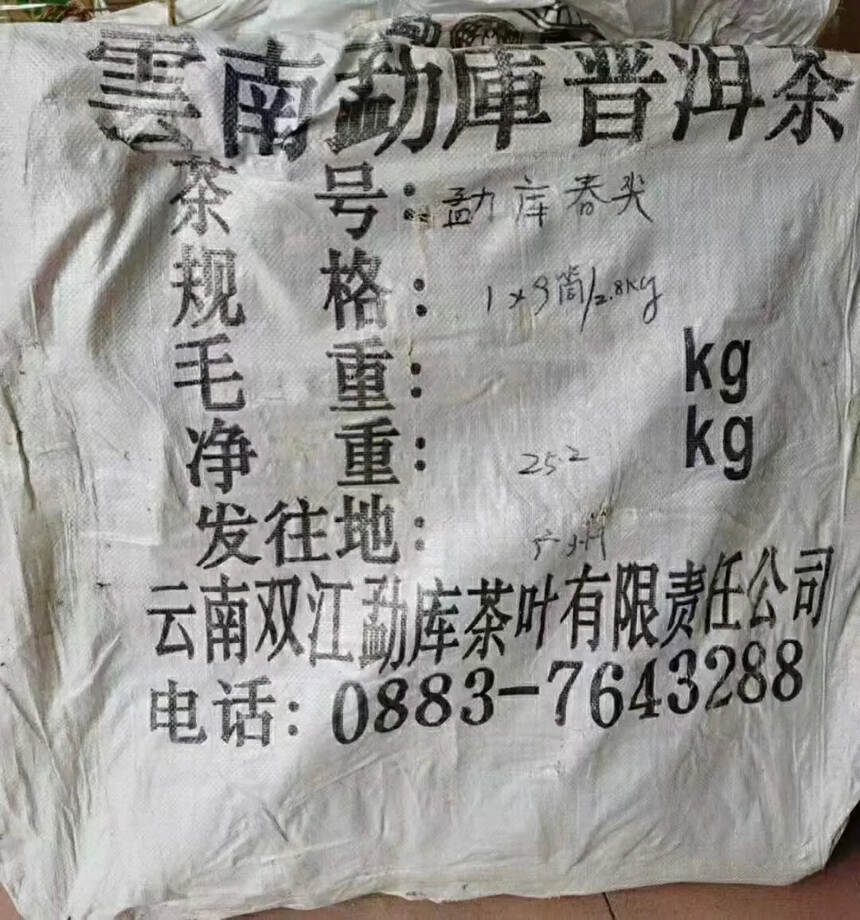 雲南勐库普洱茶
茶号：勐库春尖
规格：1×9筒/2.8kg
毛重：kg
净重：25.2kg
发往地：广州
云南双江勐库茶叶有限责任公司
电话：0883-7643288